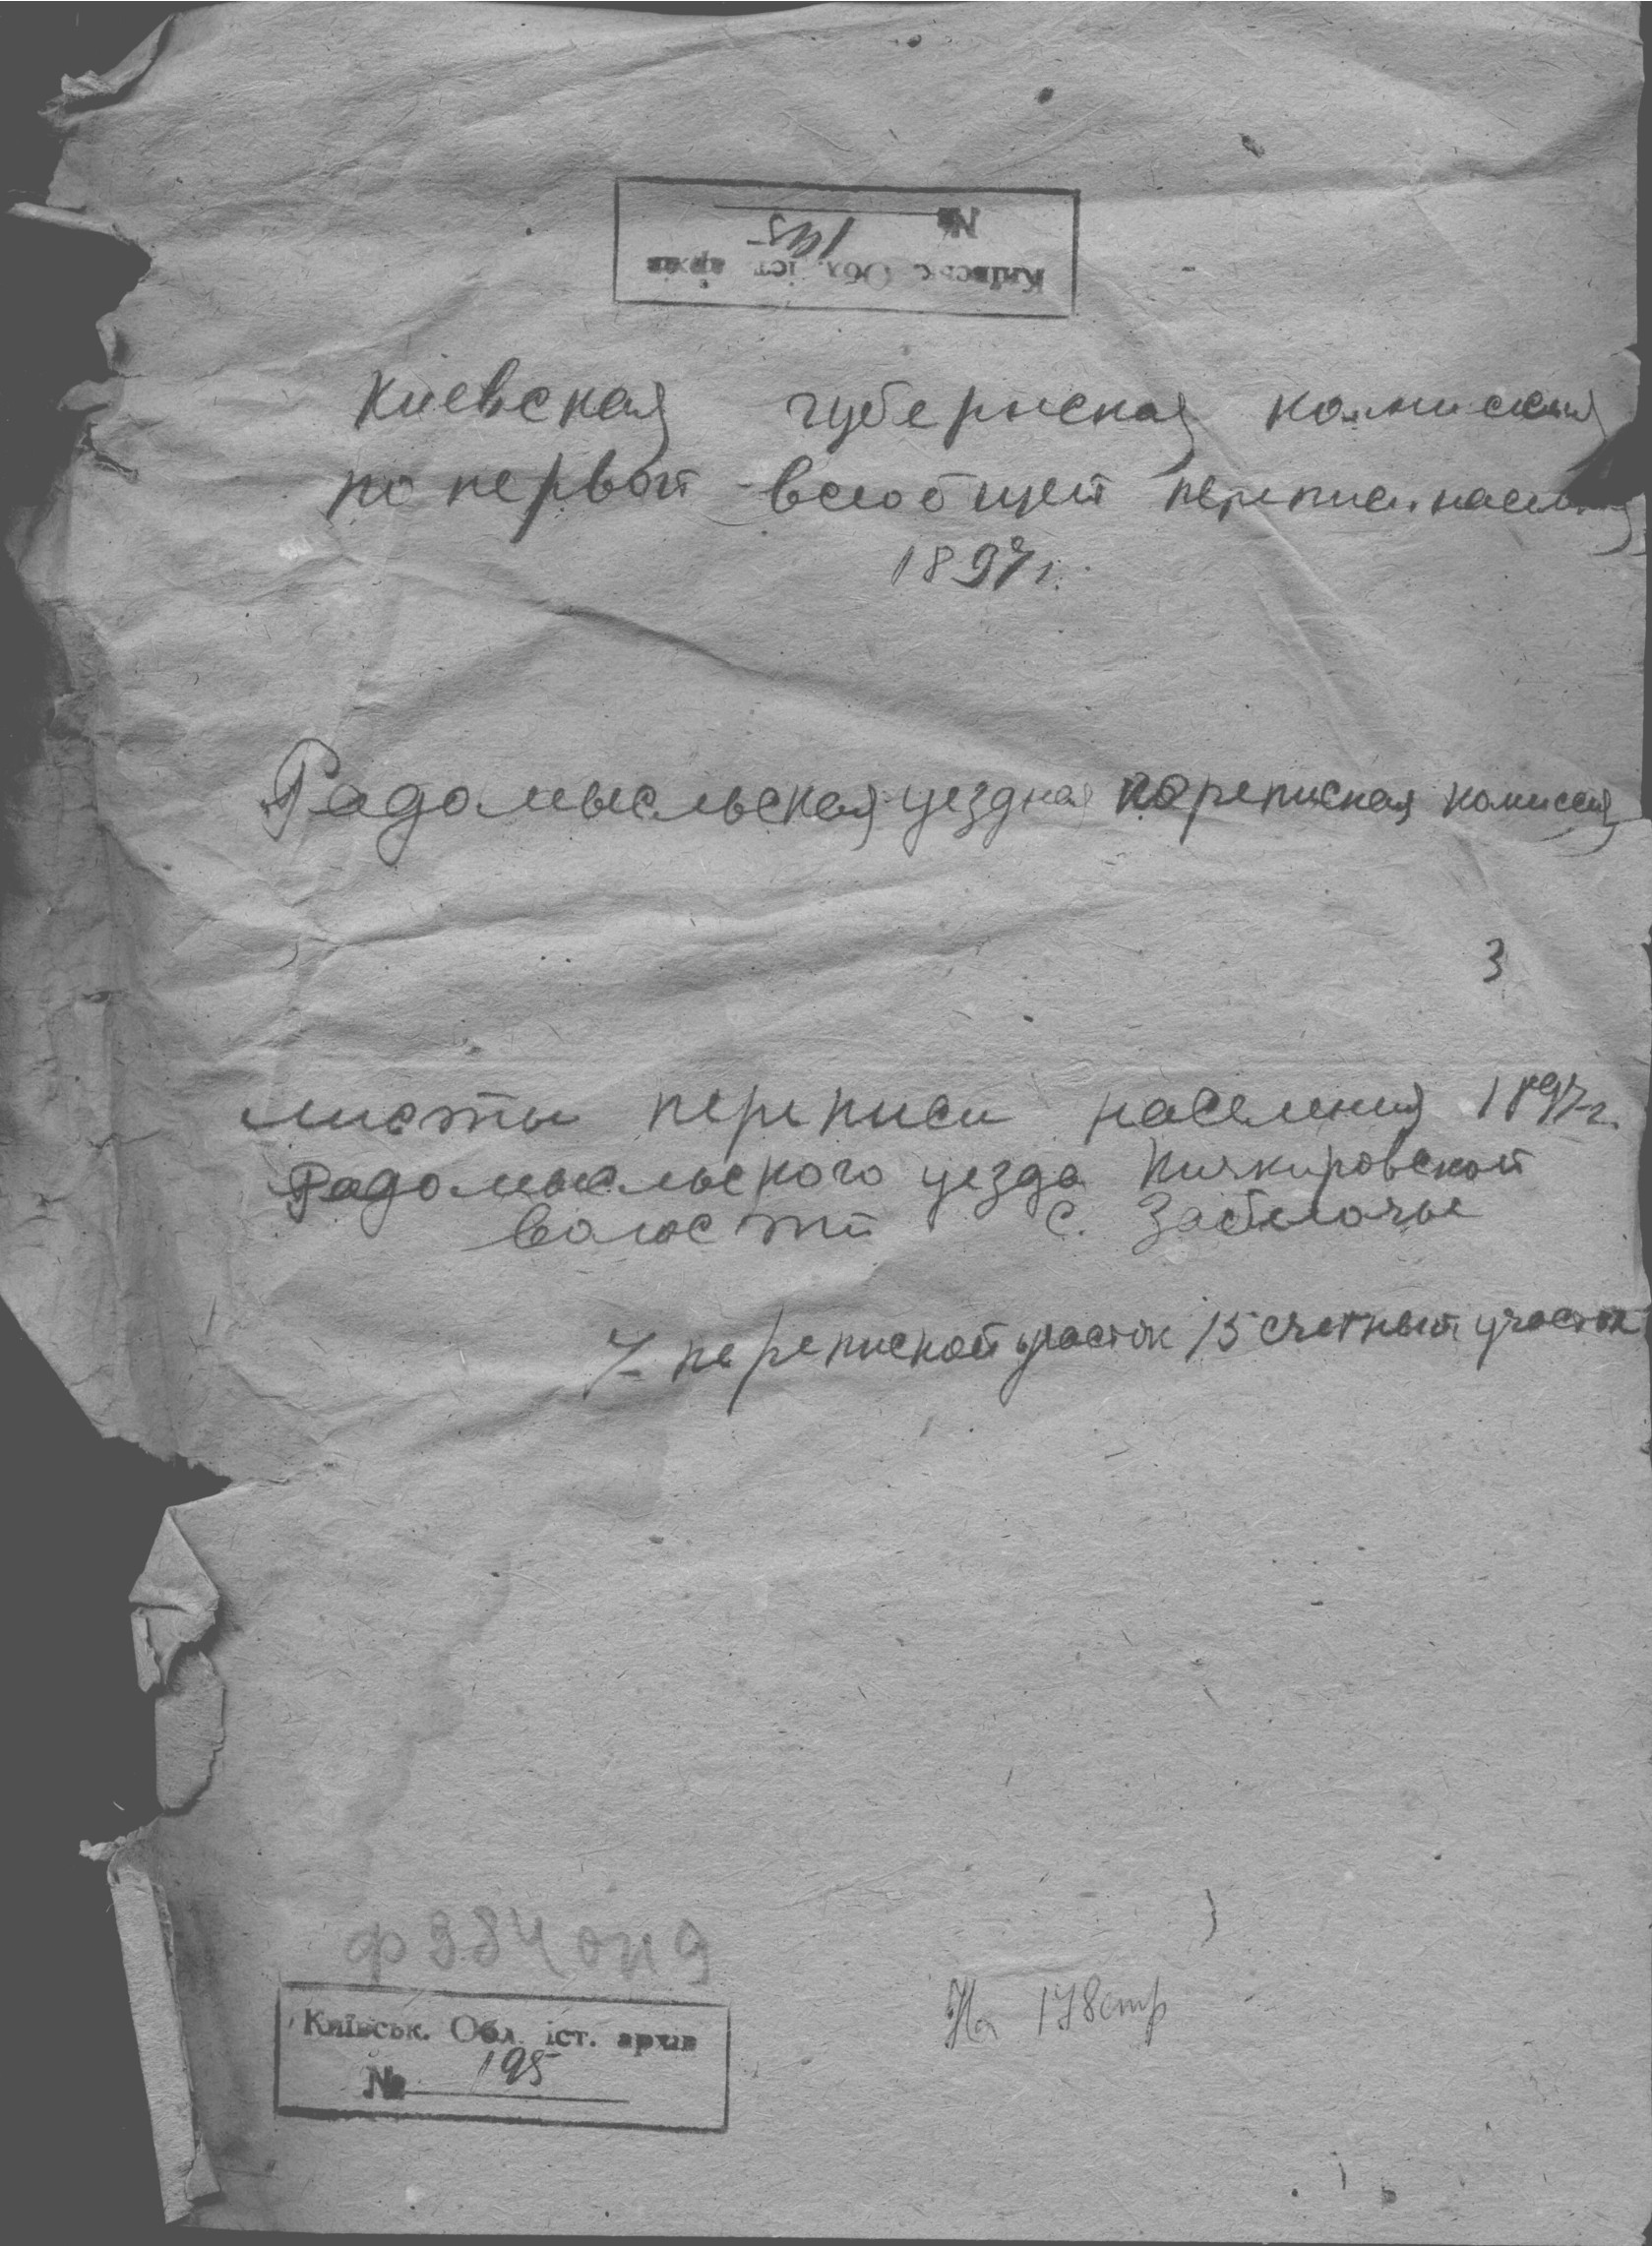 № 195
Київськ. Обл. іст. архів
Киевская губернская комиссия
по первой всеобщей переписи населения
1897 г.
Радомысльская уездная переписная комиссия
3
листы переписи населения 1897 г.
Радомысльского уезда Кичкировской
волости с. Заболочье
7 переписной участок 15 счетный участок
ф 384 оп 9
Київськ. Обл. іст. архів
№ 195
На 178 стр